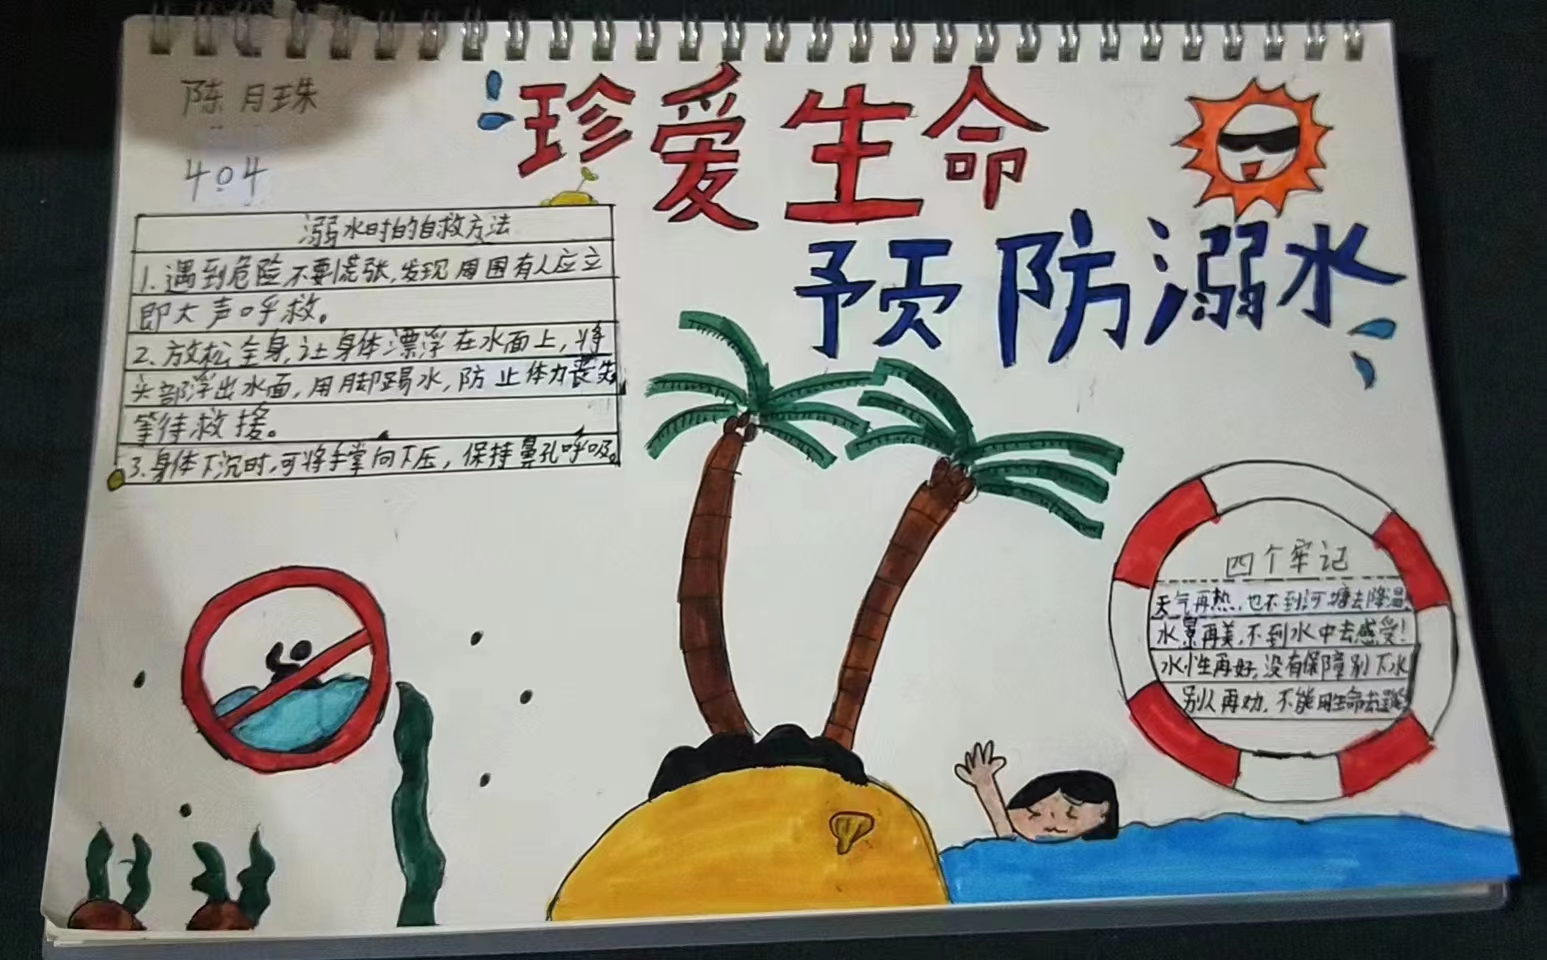 陈月珠
404
珍爱生命
预防溺水
溺水时的自救方法
1.遇到危险不要慌张,发现周围有人应立
即大声呼救。
2.放松全身,让身体漂浮在水面上,将
头部浮出水面,用脚踢水,防止体力丧失
等待救援。
3.身体下沉时,可将手掌向下压,保持鼻孔呼吸。
四个牢记
天气再热,也不到河塘去降温
水景再美,不到水中去感受!
水性再好,没有保障别下水
别人再劝,不能用生命去